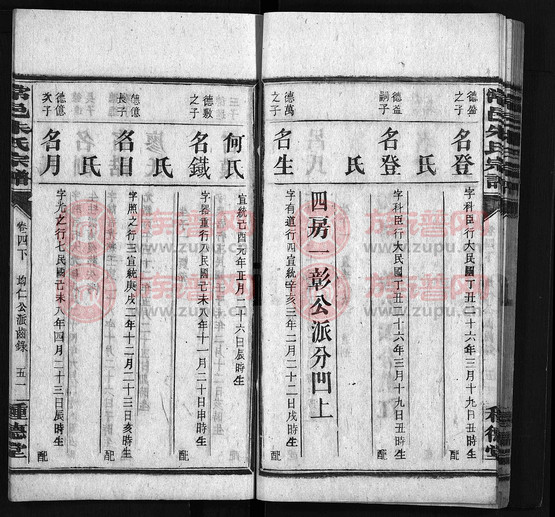 常邑朱氏宗譜
德盈之子
名登
字科臣行大民國丁丑二十六年三月十九日丑時生
配
氏
德盈嗣子
名登
字科臣行大民國丁丑二十六年三月十九日丑時生
配
氏
四房一彰公派分門上
德萬之子
名生
字有道行四宣統辛亥三年二月二十二日戌時生
配
何氏
宣統己酉元年正月二十六日辰時生
德敷之子
名鐵
民國己未八年十一月二十日申時生
配
氏
德億長子
名日
字照之行三宣統庚戌二年十二月二十三日亥時生
配
氏
德億次子
名月
字光之行七民國己未八年四月二十三日辰時生
配
常邑朱氏宗譜
卷四下
均仁公派齒錄
五一
種德堂
族譜网
www.zupu.cn